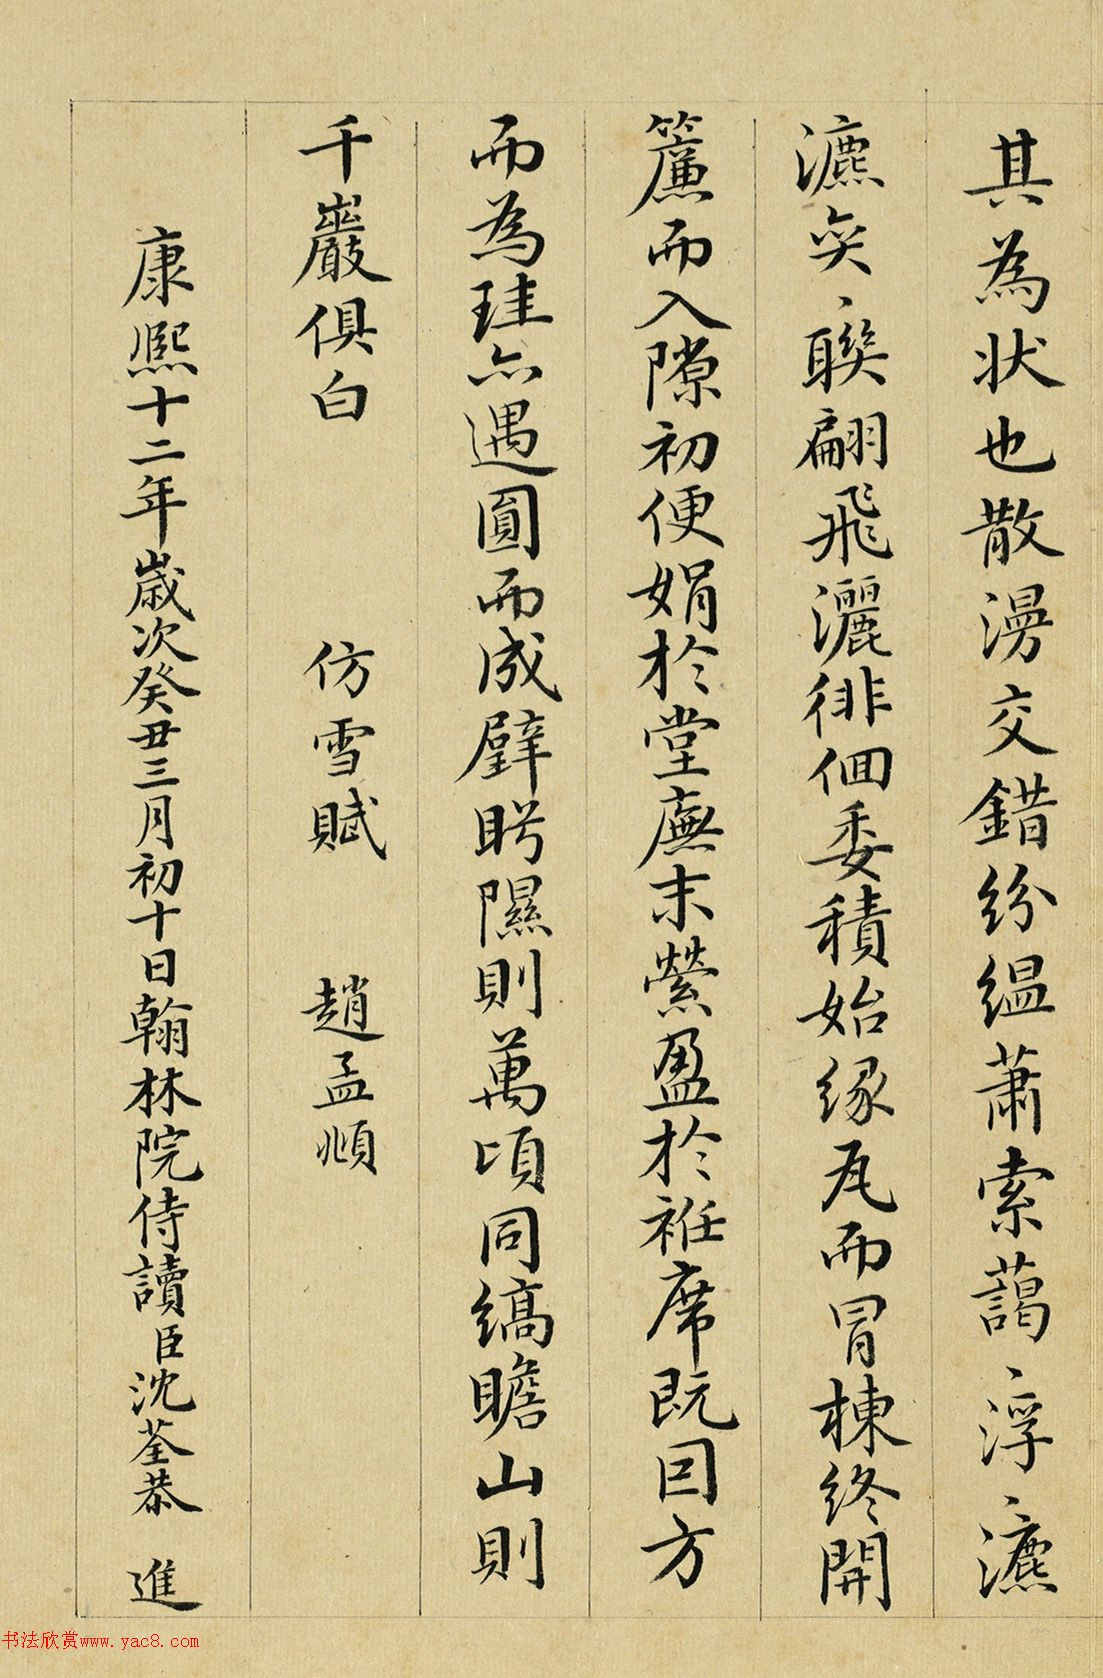 其為状也散漫交錯紛縕蕭索藹、浮、瀌
瀌奕、聯翩飛灑徘徊委積始緣瓦而冒棟終開
簾而入隙初便娟於堂廡末縈盈於袵席既因方
而為珪亦遇圓而成璧眄隰則萬頃同縞瞻山則
千巖俱白 仿雪賦 趙孟頫
康熙十二年歲次癸丑三月初十日翰林院侍讀臣沈荃恭 進
书法欣赏www.yac8.com